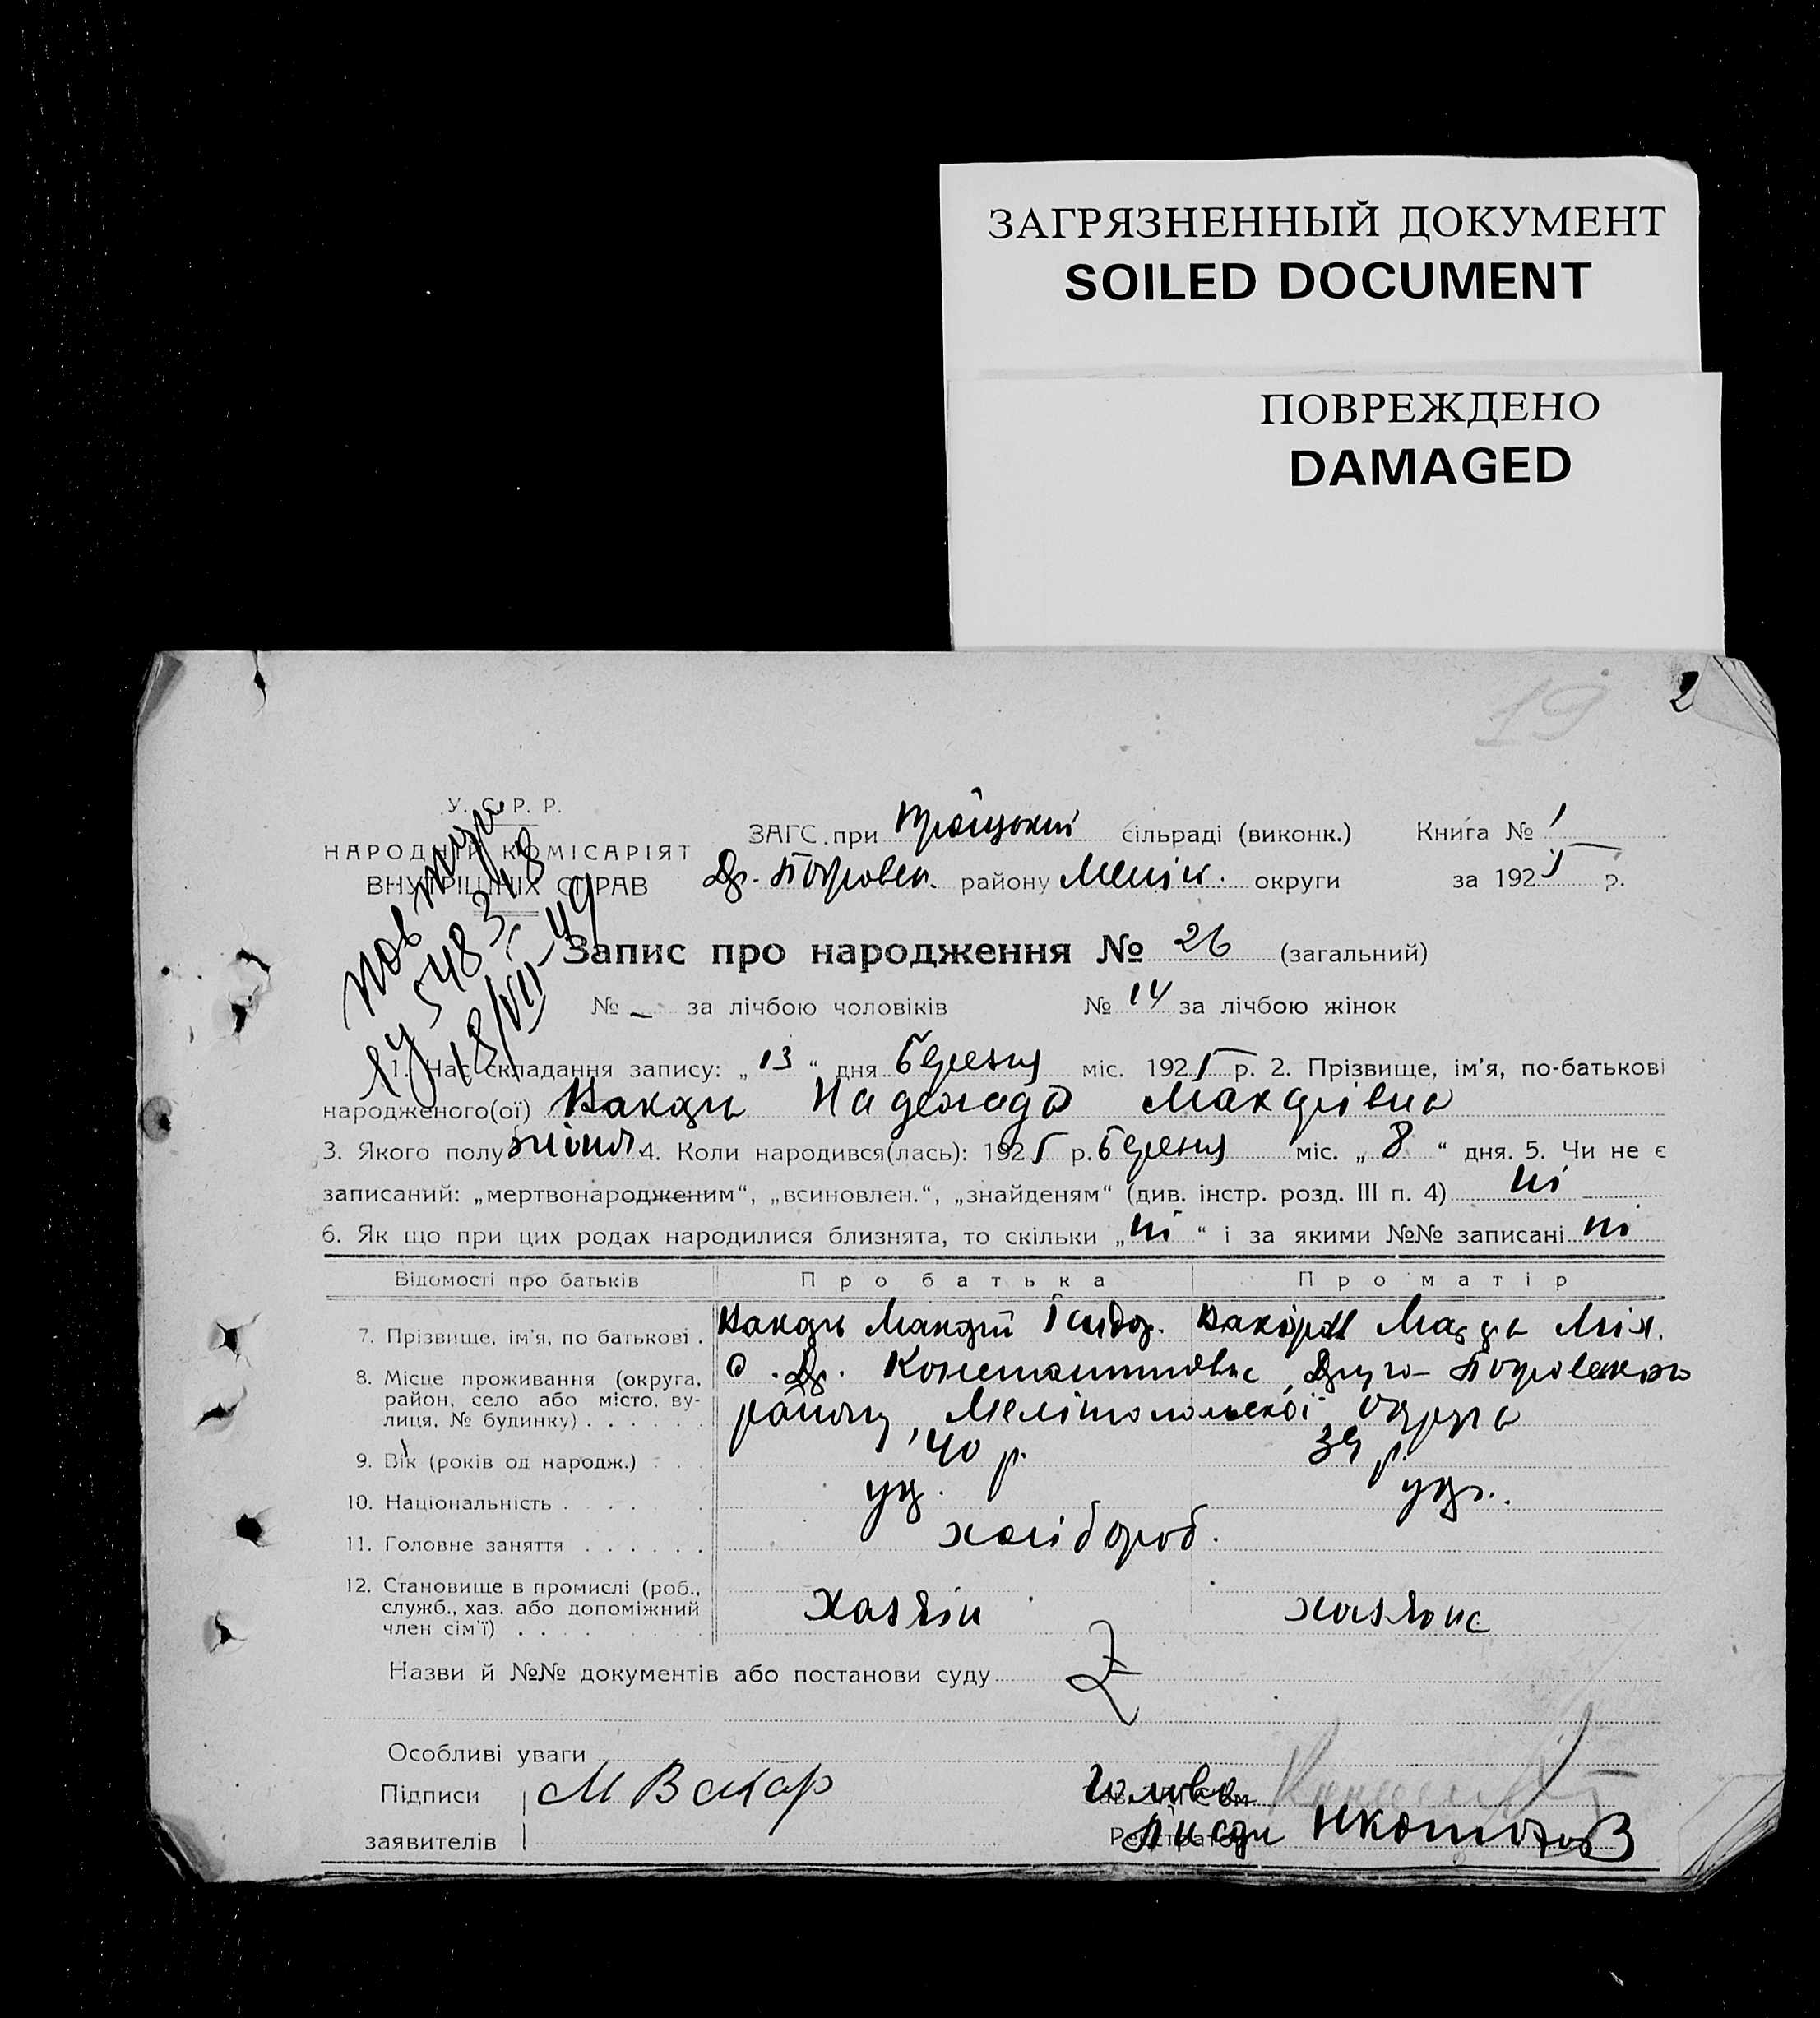 ЗАГРЯЗНЕННЫЙ ДОКУМЕНТ
SOILED DOCUMENT
ПОВРЕЖДЕНО
DAMAGED
19 2
У. С. Р. Р.
НАРОДНІЙ КОМІСАРІЯТ
ВНУТРІШНІХ СПРАВ
ЗАГС при сільраді (виконк.) Книга № 1
району округи за 1925 р.
18/VII-49
Запис про народження № 26 (загальний)
№ – за лічбою чоловіків № 14 за лічбою жінок
1. Час складання запису: „13“ дня Березня міс. 1925 р. 2. Прізвище, ім'я, по-батькові
народженого(ої) Вакарь Надежда
3. Якого полу жіноч. 4. Коли народився(лась): 1925 р. березня міс. „8“ дня. 5. Чи не є
записаний: „мертвонародженим“, „всиновлен.“, „знайденям“ (див. інстр. розд. III п. 4) ні
6. Як що при цих родах народилися близнята, то скільки „ні“ і за якими №№ записані ні
Відомості про батьків Про батька Про матір
7. Прізвище, ім'я, по батькові . Вакарь
8. Місце проживання (округа,
район, село або місто, ву-
лиця, № будинку) . . . . . . району, Мелітопольської округи
9. Вік (років од народж.) . . . 40 р. 39 р.
10. Національність . . . . . укр. укр.
11. Головне заняття . . . . . . хлібороб.
12. Становище в промислі (роб.,
служб., хаз. або допоміжний
член сім'ї) . . . . . . хазяїн хазяйка
Назви й №№ документів або постанови суду Z
Особливі уваги
Підписи М Вакар Голова
заявителів Реєстратор